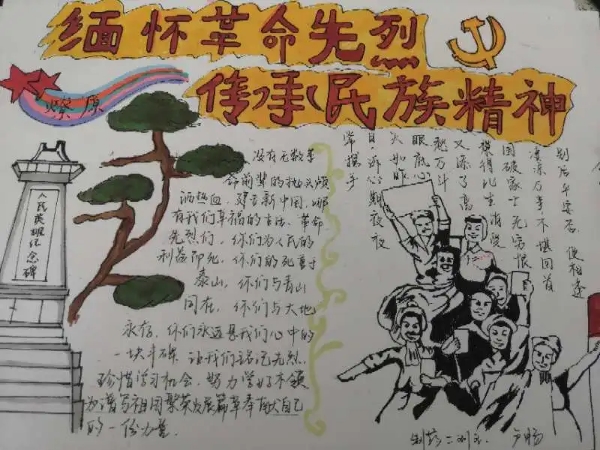 缅怀革命先烈
传承民族精神
燎原
人民英雄纪念碑
没有无数革
命前辈的抛头颅
洒热血，建立新中国，哪
有我们幸福的生活，革命
先烈们，你们为人民的
利益即死，你们的死重于
泰山，你们与青山
同在，你们与大地
永存，你们永远是我们心中的
一块丰碑，让我们铭记先烈
珍惜学习机会，努力学好本领
为谱写祖国繁荣发展篇章奉献自己
的一份力量。
别后平安否，便相逢
凄凉万事不堪回首
国破家亡无穷恨
禁得此生消受
又添了离
愁万斗
眼底心
头如昨
日诉心期夜夜
常携手